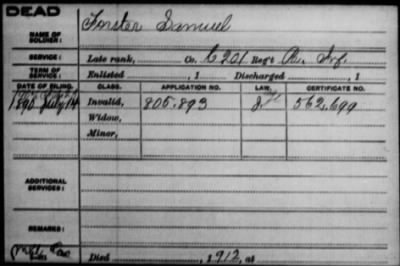 DEAD
NAME OF SOLDIER: Forster Samuel
SERVICE: Late rank, Co. C 201 Reg't Pa. Inf.
TERM OF SERVICE: Enlisted , 1 Discharged , 1
DATE OF FILING. CLASS. APPLICATION NO. LAW. CERTIFICATE NO.
1890 July 14 Invalid, 805,893 562,699
Widow,
Minor,
ADDITIONAL SERVICES:
REMARKS:
Died , 1912, at